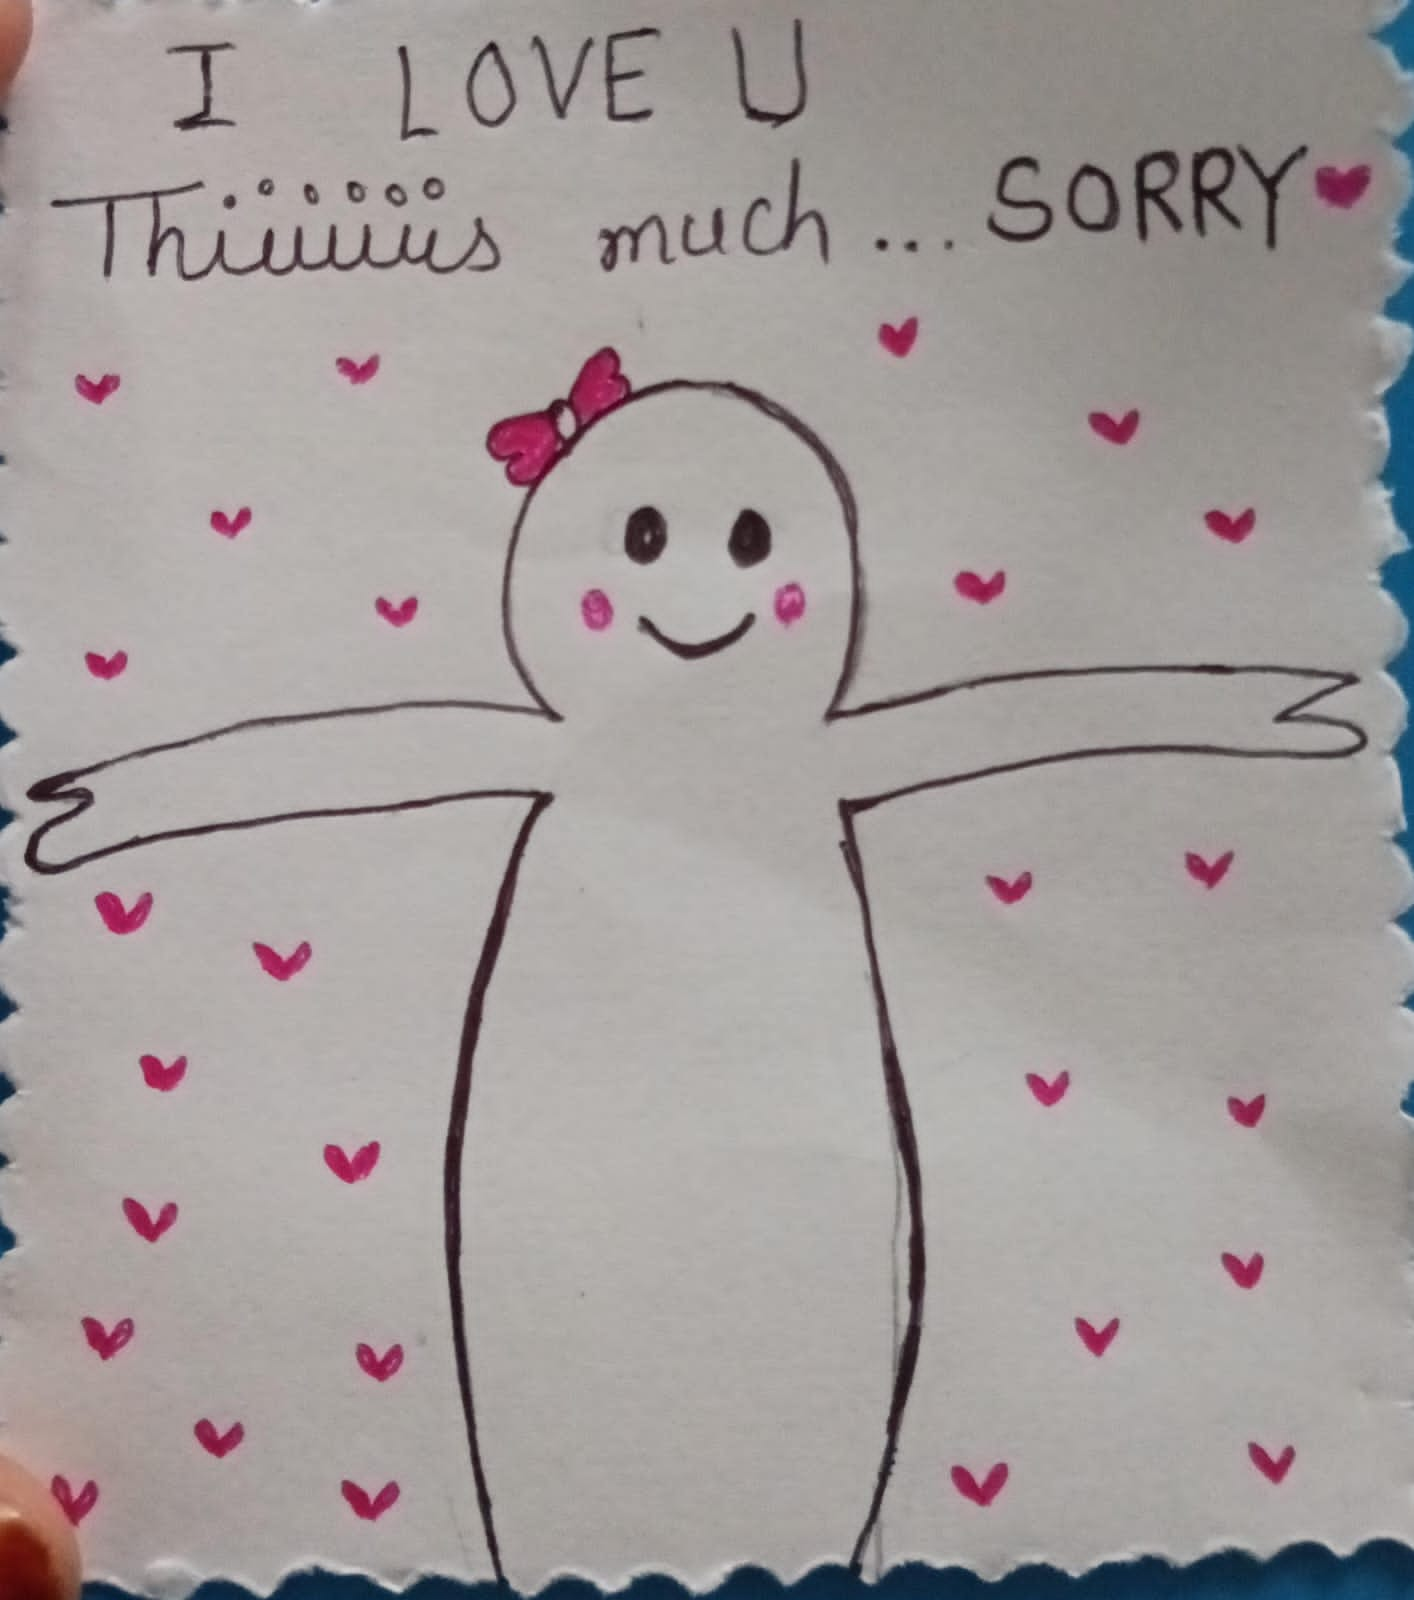 I LOVE U
Thiiiiiis much... SORRY